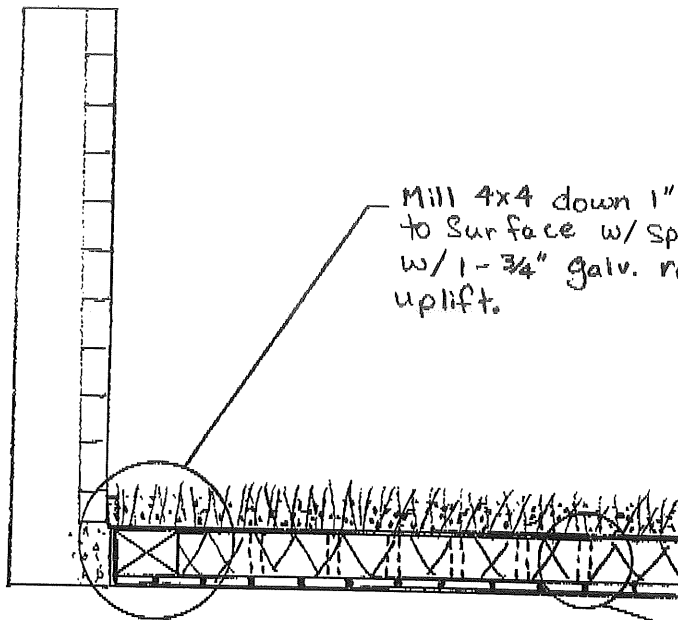 Mill 4x4 down 1"
to Surface w/
w/ 1-3/4" galv.
uplift.